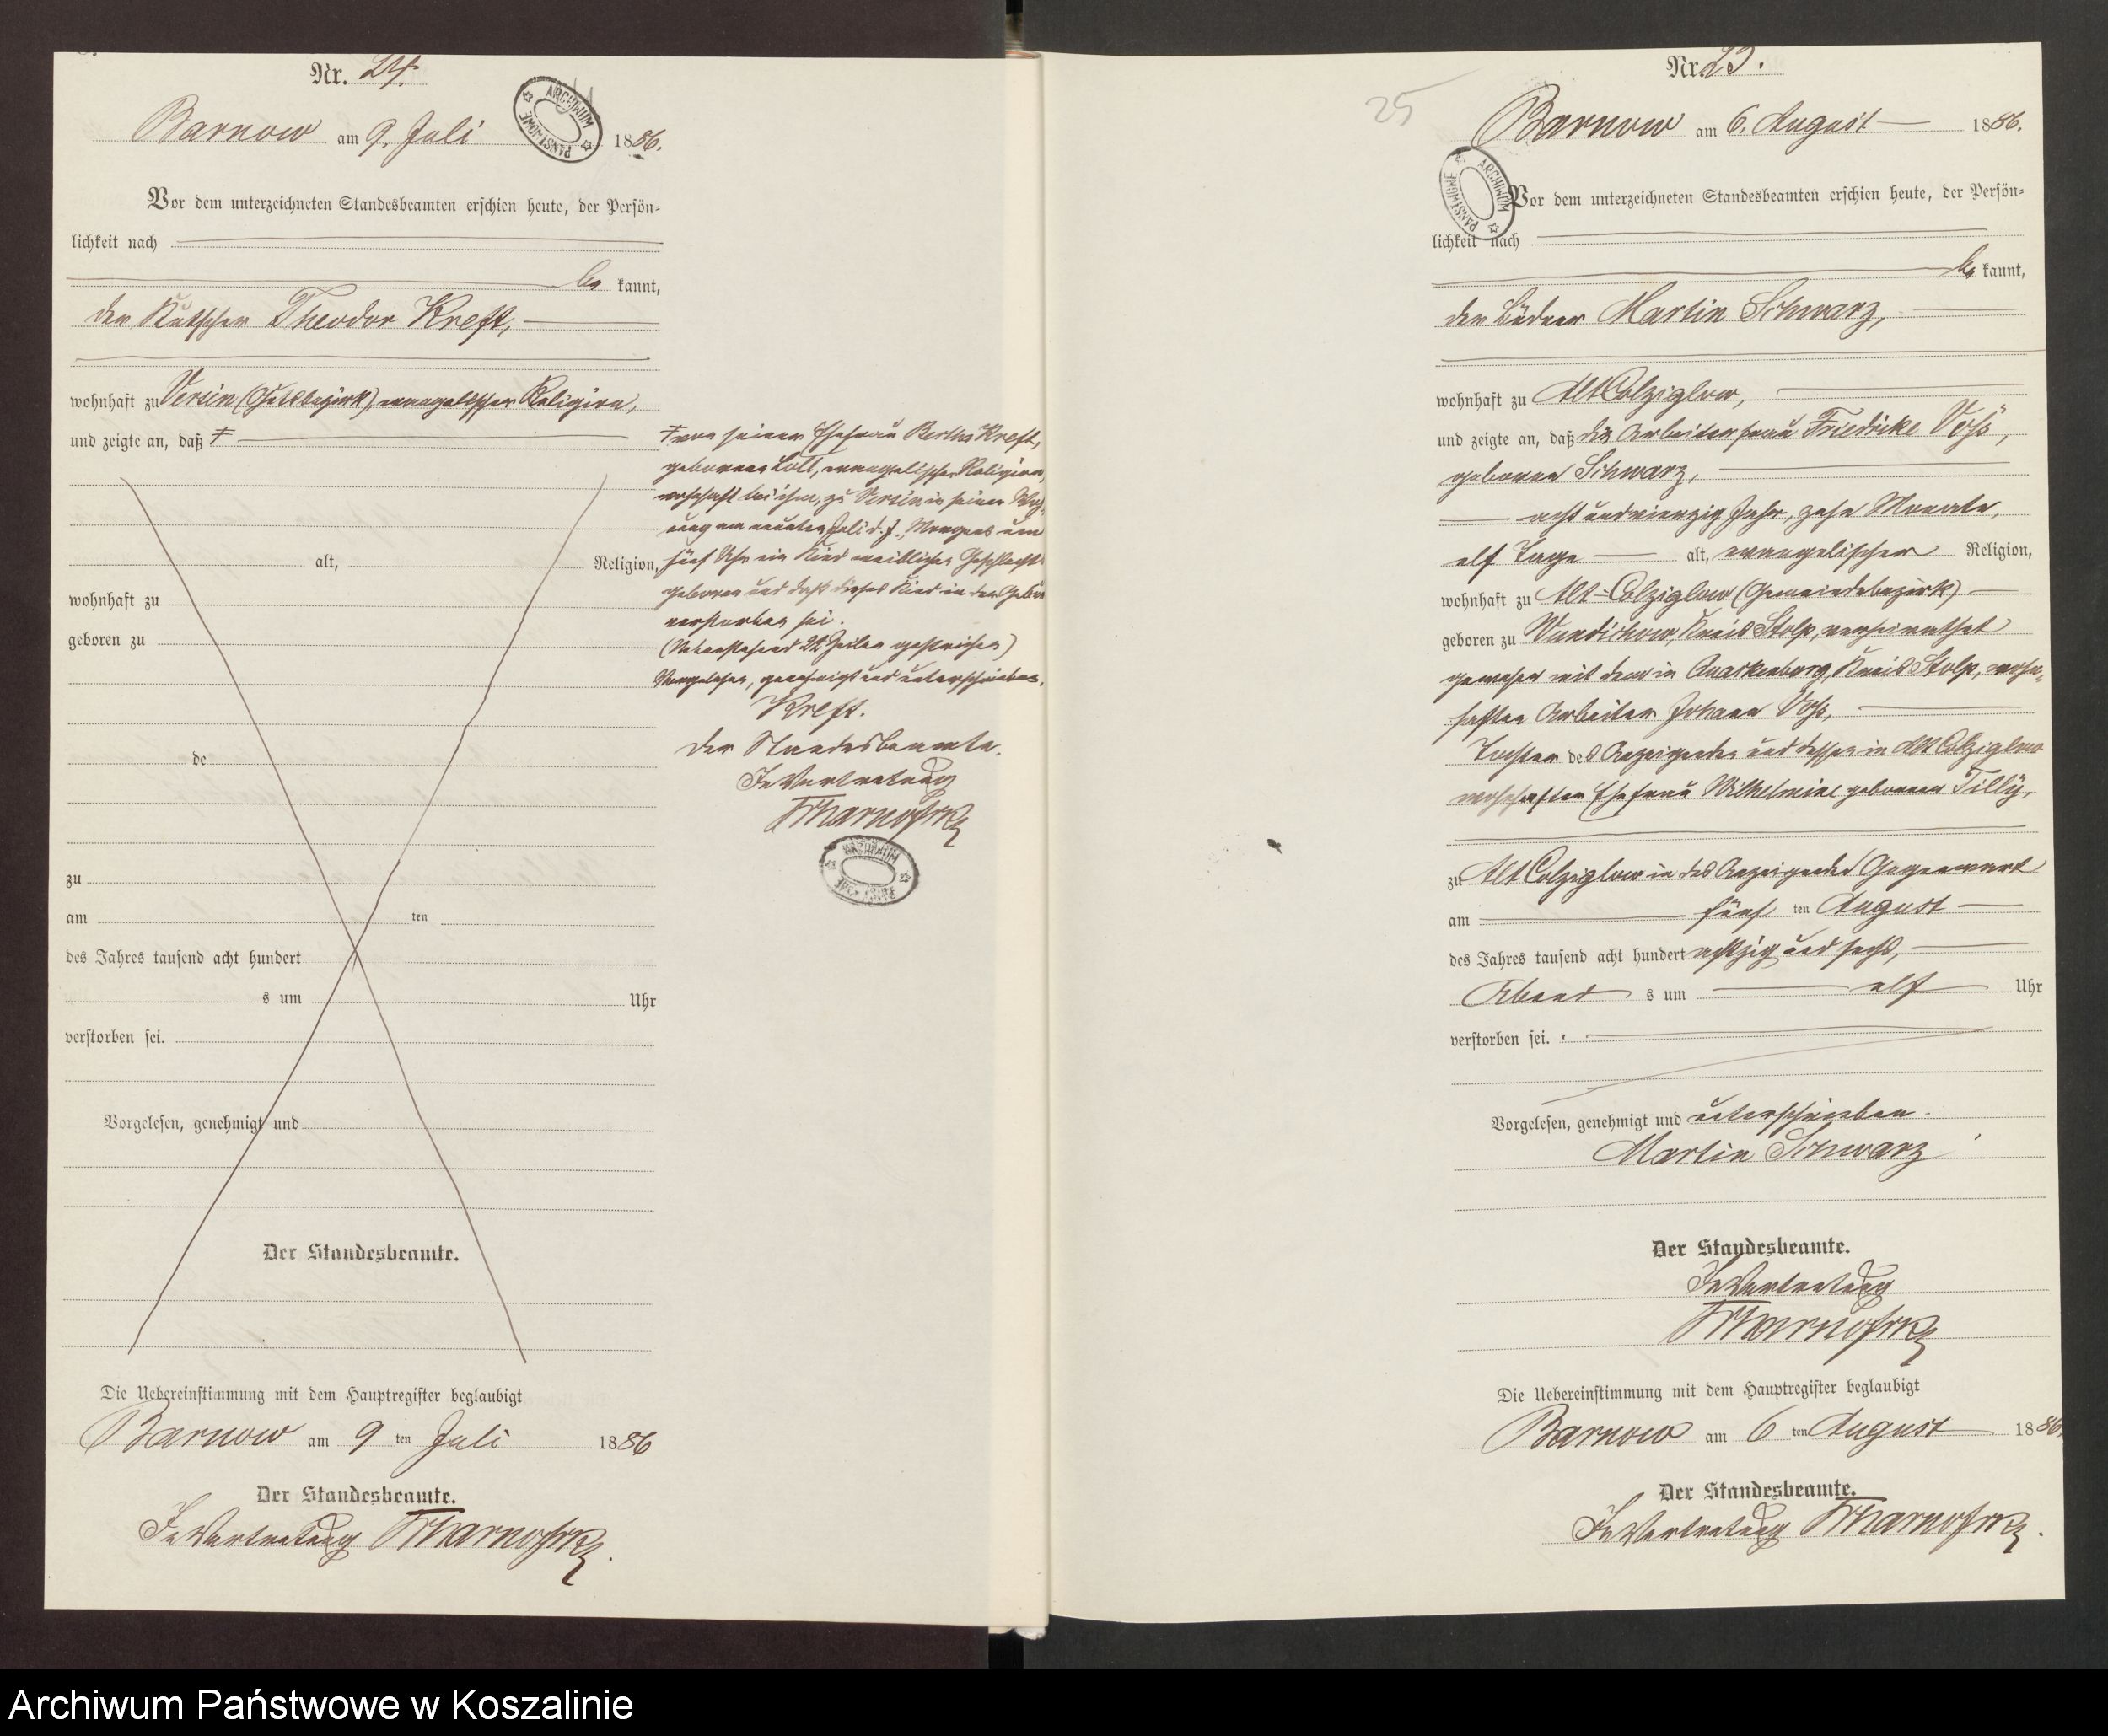 Nr. 24.
Barnow am 9. Juli 1886.
ARCHIWUM PAŃSTWOWE
Vor dem unterzeichneten Standesbeamten erschien heute, der Persön-
lichkeit nach
be kannt,
der Kutscher Theodor Kreft,
wohnhaft zu Versin (Gutsbezirk), evangelischer Religion,
und zeigte an, daß ‡
alt, Religion,
wohnhaft zu
geboren zu
de
zu
am ten
des Jahres tausend acht hundert
s um Uhr
verstorben sei.
Vorgelesen, genehmigt und
Der Standesbeamte.
‡ von seiner Ehefrau Bertha Kreft,
geborenen Lott, evangelischer Religion,
wohnhaft bei ihm, zu Versin in seiner Woh-
nung am neunten Juli d. J., Morgens um
fünf Uhr ein Kind weiblichen Geschlechts
geboren und daß dieses Kind in der Geburt
verstorben sei.
(Nebenstehend 22 Zeilen gestrichen)
Vorgelesen, genehmigt und unterschrieben.
Kreft.
Der Standesbeamte.
In Vertretung
ARCHIWUM
Die Uebereinstimmung mit dem Hauptregister beglaubigt
Barnow am 9 ten Juli 1886
Der Standesbeamte.
In Vertretung
Nr. 25.
25
Barnow am 6. August 1886.
ARCHIWUM PAŃSTWOWE
Vor dem unterzeichneten Standesbeamten erschien heute, der Persön-
lichkeit nach
be kannt,
der Büdner Martin Schwarz,
wohnhaft zu Alt Colziglow,
und zeigte an, daß die Arbeiterfrau Friedrike Voß,
geborene Schwarz,
acht und vierzig Jahr, zehn Monate,
elf Tage alt, evangelischer Religion,
wohnhaft zu Alt-Colziglow (Gemeindebezirk)
geboren zu Wundichow, Kreis Stolp, verheirathet
gewesen mit dem in Quackenburg, Kreis Stolp, wohn-
haften Arbeiter Johann Voß,
Tochter des Anzeigenden und dessen in Alt Colziglow
wohnhaften Ehefrau Wilhelmine geborenen Tilly,
zu Alt Colziglow in des Anzeigenden Gegenwart
am fünf ten August
des Jahres tausend acht hundert achtzig und sechs,
Abend s um elf Uhr
verstorben sei.
Vorgelesen, genehmigt und unterschrieben.
Martin Schwarz
Der Standesbeamte.
In Vertretung
Die Uebereinstimmung mit dem Hauptregister beglaubigt
Barnow am 6 ten August 1886.
Der Standesbeamte.
In Vertretung
Archiwum Państwowe w Koszalinie